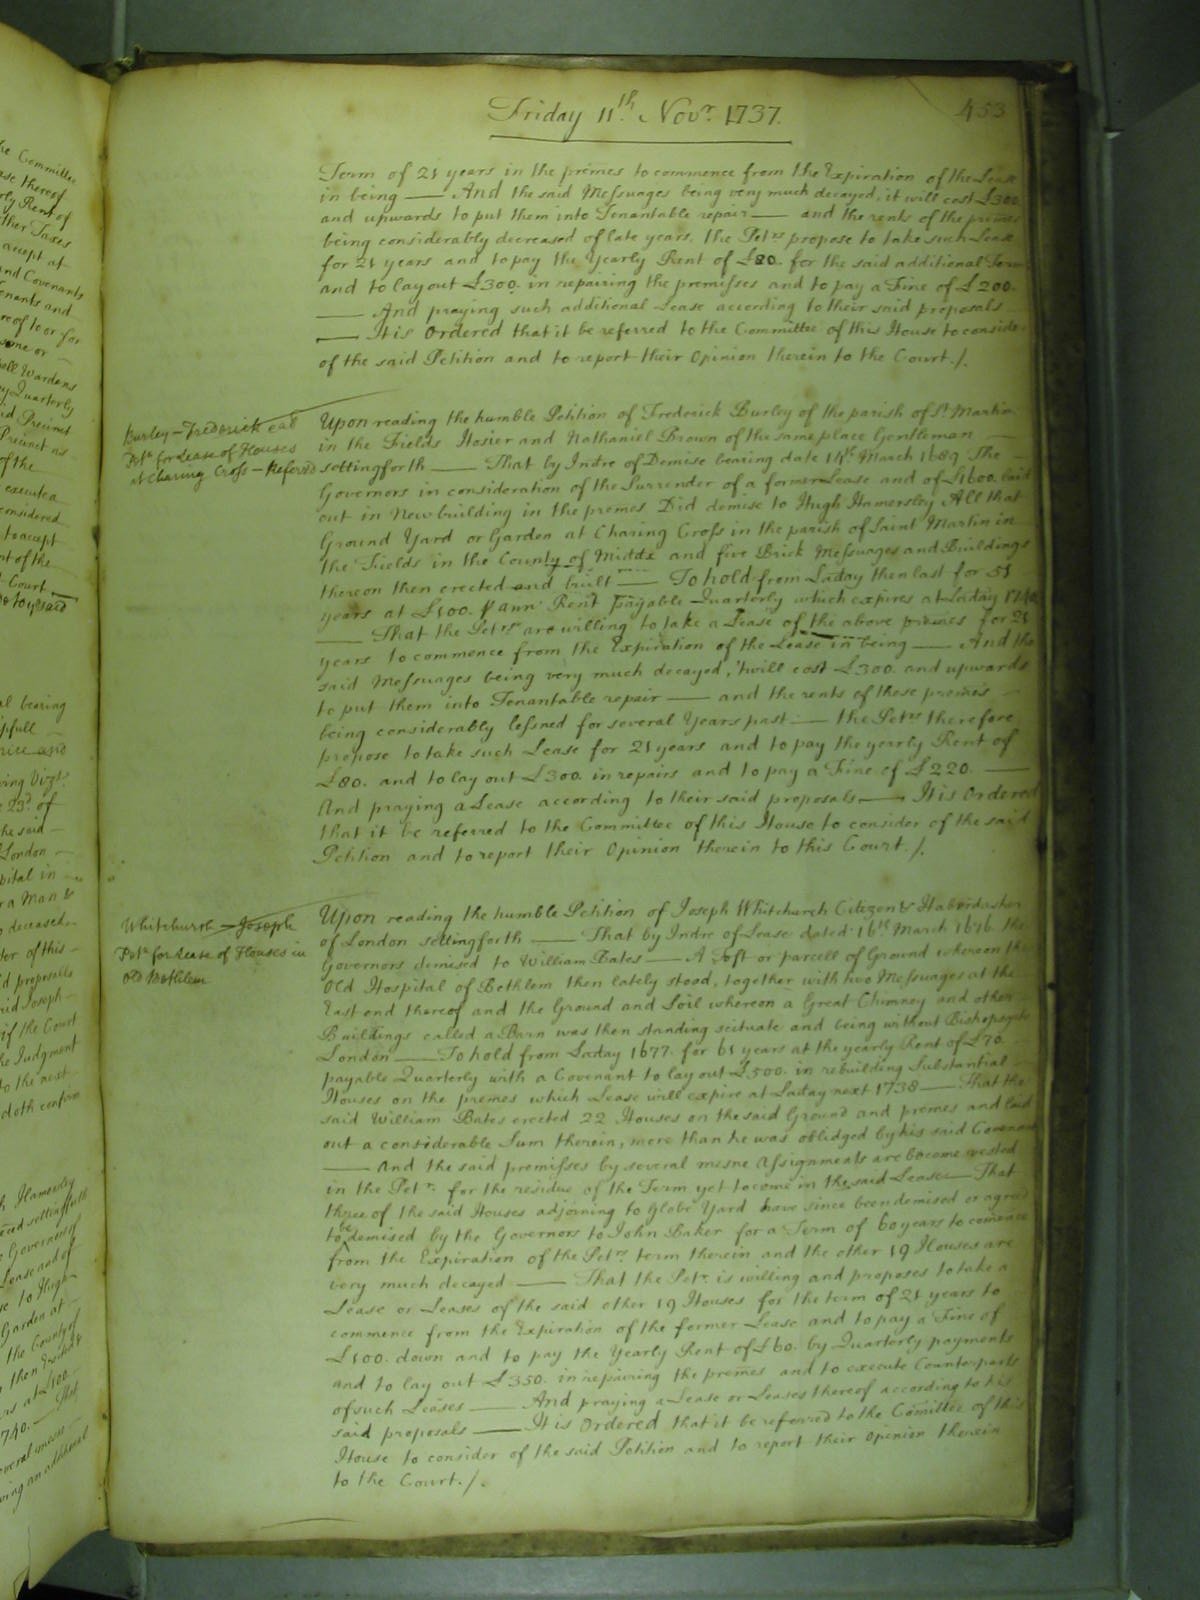 Friday 11th. Novr. 1737.
453
Term of 21 years in the premes to commence from the Expiration of the Lease
in being — And the said Messuages being very much decayed, it will cost £300
and upwards to put them into Tenantable repair — and the rents of the premes
being considerably decreased of late years, the Petrs propose to take such Lease
for 21 years and to pay the Yearly Rent of £80. for the said additional Term
and to lay out £300. in repairing the premisses and to pay a Fine of £200.
— And praying such additional Lease according to their said proposals
— It is Ordered that it be referred to the Committee of this House to consider
of the said Petition and to report their Opinion therein to the Court./.
Burley – Frederick eal
Petn for Lease of Houses
at Charing Cross – Referred
Upon reading the humble Petition of Frederick Burley of the parish of St. Martin
in the Fields Hosier and Nathaniel Brown of the same place Gentleman —
settingforth — That by Indre of Demise bearing date 14th March 1689 The
Governors in consideration of the Surrender of a former Lease and of £1600. laid
out in New building in the premes Did demise to Hugh Hamersley All that
Ground Yard or Garden at Charing Cross in the parish of Saint Martin in
the Fields in the County of Middx and five Brick Messuages and Buildings
thereon then erected and built — To hold from Laday then last for 51
years at £100. p ann Rent payable Quarterly which expires at Laday 1740
— That the Petrs are willing to take a Lease of the above premes for 21
years to commence from the Expiration of the Lease in being — And the
said Messuages being very much decayed, 'twill cost £300. and upwards
to put them into Tenantable repair — and the rents of these premes —
being considerably lessned for several Years past — the Petrs therefore
propose to take such Lease for 21 years and to pay the yearly Rent of
£80. and to lay out £300. in repairs and to pay a Fine of £220. —
And praying a Lease according to their said proposals — It is Ordered
that it be referred to the Committee of this House to consider of the said
Petition and to report their Opinion therein to this Court./.
Whitchurch – Joseph
Petn for Lease of Houses in
Old Bethlem
Upon reading the humble Petition of Joseph Whitchurch Citizen & Haberdasher
of London settingforth — That by Indre of Lease dated 16th March 1676 the
Governors demised to William Bates — A Toft or parcell of Ground whereon the
Old Hospital of Bethlem then lately stood, together with two Messuages at the
East end thereof and the Ground and Soil whereon a Great Chimney and other
Buildings called a Barn was then standing scituate and being without Bishopsgate
London — To hold from Laday 1677. for 61 years at the yearly Rent of £70. —
payable Quarterly with a Covenant to lay out £500. in rebuilding Substantial —
Houses on the premes which Lease will expire at Laday next 1738 — That the
said William Bates erected 22 Houses on the said Ground and premes and laid
out a considerable Sum therein, more than he was oblidged by his said Covenant
— And the said premisses by several mesne Assignments are become vested
in the Petr. for the residue of the Term yet to come in the said Lease — That
three of the said Houses adjoining to Globe Yard have since been demised or agreed
to be demised by the Governors to John Baker for a Term of 60 years to comence
from the Expiration of the Petrs term therein and the other 19 Houses are
very much decayed — That the Petr. is willing and proposes to take a
Lease or Leases of the said other 19 Houses for the term of 21 years to
commence from the Expiration of the former Lease and to pay a Fine of
£100. down and to pay the Yearly Rent of £60. by Quarterly payments
and to lay out £350. in repairing the premes and to execute Counterparts
of such Leases — And praying a Lease or Leases thereof according to his
said proposals — It is Ordered that it be referred to the Comittee of this
House to consider of the said Petition and to report their Opinion therein
to the Court./.